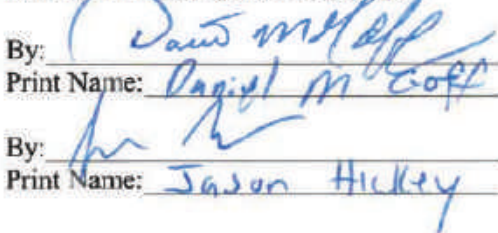 By:
Print Name: Daniel M Goff
By:
Print Name: Jason Hickey